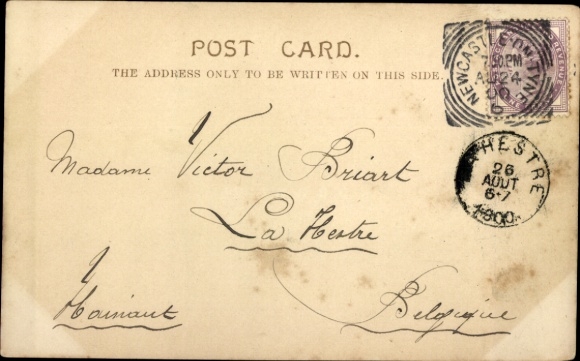 POST CARD.
THE ADDRESS ONLY TO BE WRITTEN ON THIS SIDE.
NEWCASTLE-ON-TYNE
AU 24
00
HESTRE
26
AOUT
6-7
1900
Madame Victor Briart
La Hestre
Hainaut
Belgique